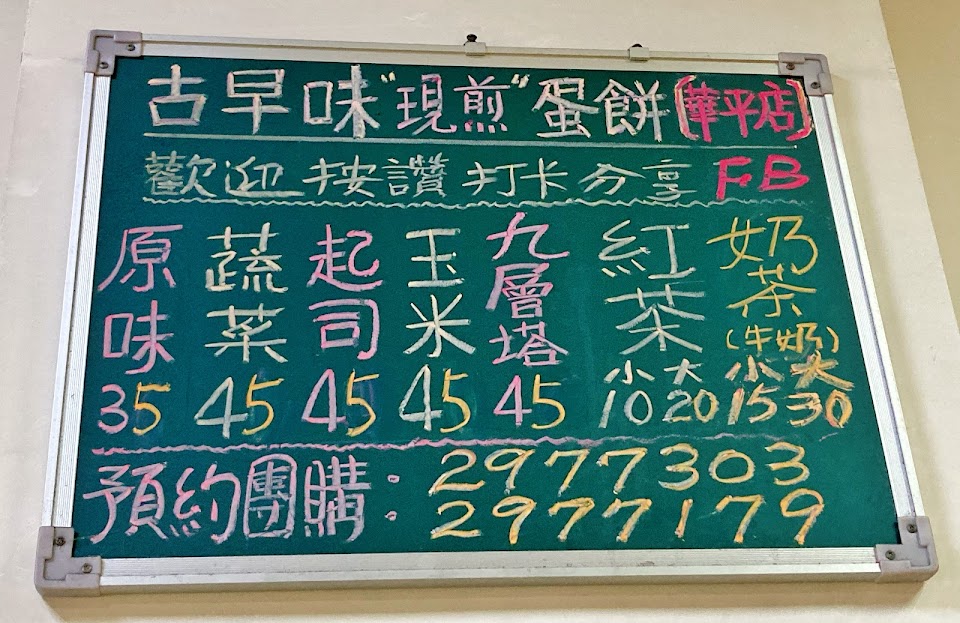 古早味"現煎"蛋餅(華平店)
歡迎 按讚 打卡 分享 FB
原味 35
蔬菜 45
起司 45
玉米 45
九層塔 45
紅茶 小10 大20
奶茶(牛奶) 小15 大30
預約團購:2977303
2977179